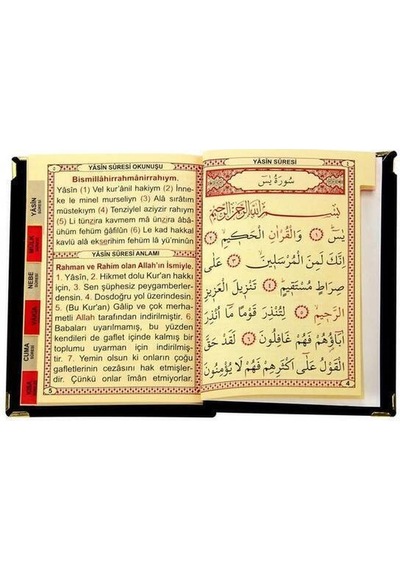 YÂSÎN SÛRESİ OKUNUŞU
Bismillâhirrahmânirrahıym.
Yâsîn (1) Vel kur'ânil hakiym (2) İnne-
ke le minel murseliyn (3) Alâ sırâtım
müstekıym (4) Tenziylel aziyzir rahıym
(5) Li tünzira kavmen mâ ünzira âbâ-
ühüm fehüm gâfilûn (6) Le kad hakkal
kavlü alâ ekserihim fehüm lâ yü'minûn
YÂSÎN SÛRESİ ANLAMI
Rahman ve Rahim olan Allah'ın İsmiyle.
1. Yâsîn, 2. Hikmet dolu Kur'an hakkı
için, 3. Sen şüphesiz peygamberler-
densin. 4. Dosdoğru yol üzerindesin.
5. (Bu Kur'an) Gâlip ve çok merha-
metli Allah tarafından indirilmiştir. 6.
Babaları uyarılmamış, bu yüzden
kendileri de gaflet içinde kalmış bir
toplumu uyarman için indirilmiş-
tir. 7. Yemin olsun ki onların çoğu
gafletlerinin cezasını hak etmişler-
dir. Çünkü onlar îmân etmiyorlar.
5
YÂSÎN
SÛRESİ
MÜLK
SÛRESİ
NEBE
SÛRESİ
CUMA
SÛRESİ
YÂSÎN SÛRESİ
سُورَةُ يٰسٓ
بِسْمِ اللّٰهِ الرَّحْمٰنِ الرَّحِيمِ
يٰسٓ ﴿١﴾ وَالْقُرْاٰنِ الْحَكِيمِ ﴿٢﴾
اِنَّكَ لَمِنَ الْمُرْسَلِينَ ﴿٣﴾ عَلٰى
صِرَاطٍ مُسْتَقِيمٍ ﴿٤﴾ تَنْزِيلَ الْعَزِيزِ
الرَّحِيمِ ﴿٥﴾ لِتُنْذِرَ قَوْمًا مَٓا اُنْذِرَ
اٰبَٓاؤُ۬هُمْ فَهُمْ غَافِلُونَ ﴿٦﴾ لَقَدْ حَقَّ
الْقَوْلُ عَلٰٓى اَكْثَرِهِمْ فَهُمْ لَا يُؤْمِنُونَ
4